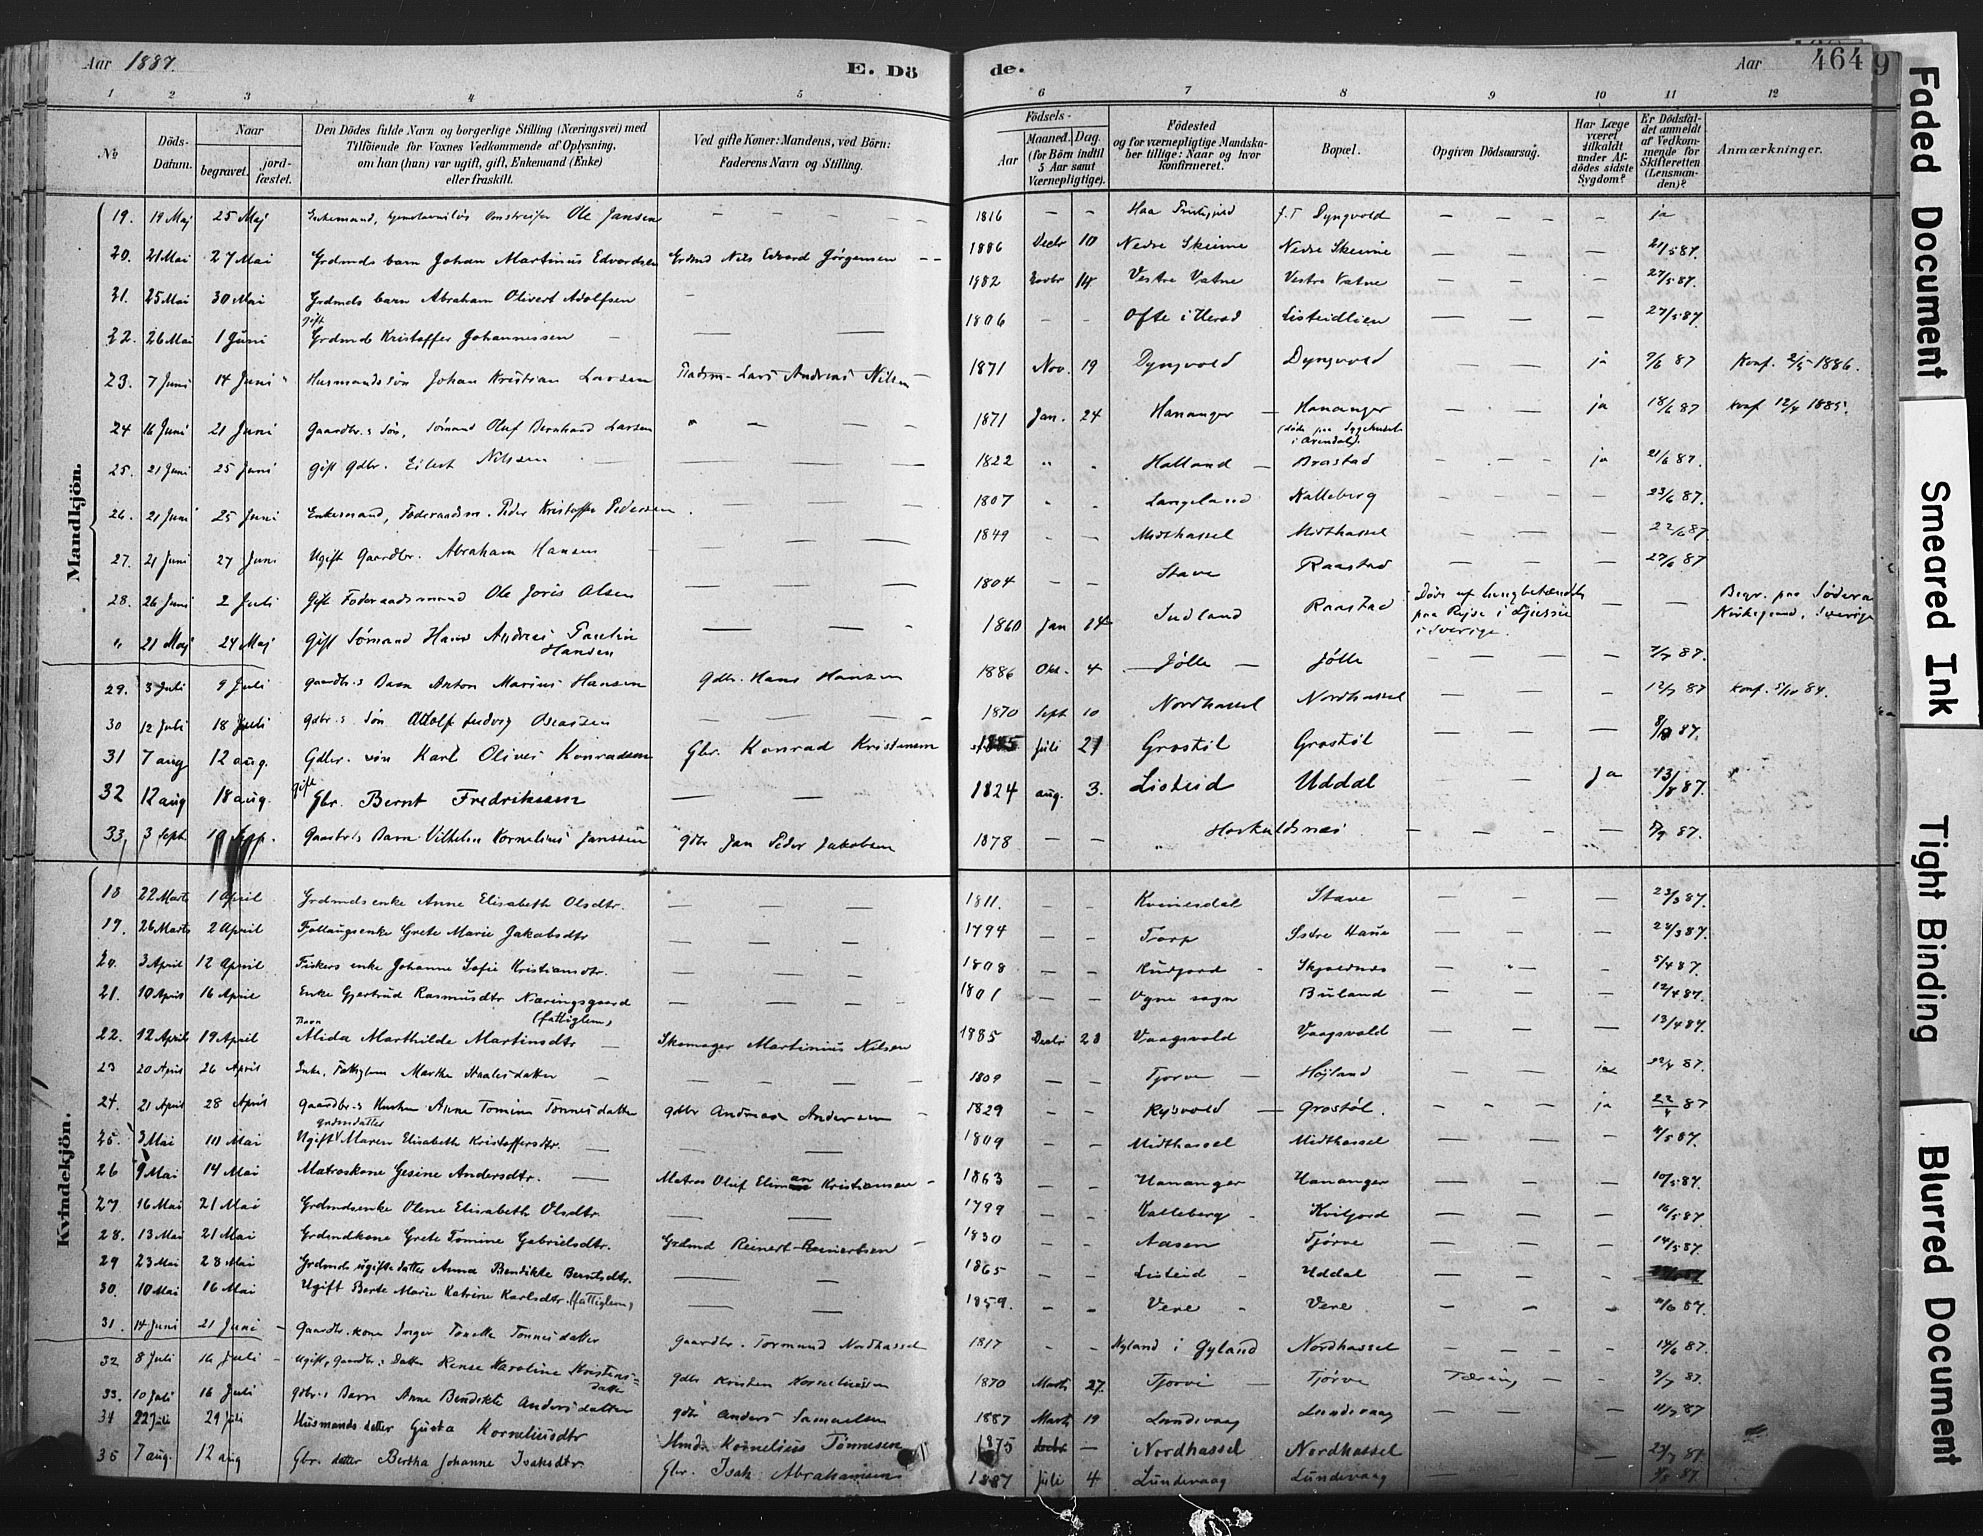 Aar 1887.
E. Dö de.
Aar
464
9
1 2 3 4 5 6 7 8 9 10 11 12
No
Döds-Datum.
Naar
begravet.
jord-fæstet.
Den Dödes fulde Navn og borgerlige Stilling (Næringsvei) med
Tilföiende for Voxnes Vedkommende af Oplysning,
om han (hun) var ugift, gift, Enkemand (Enke)
eller fraskilt.
Ved gifte Koner: Mandens, ved Börn:
Faderens Navn og Stilling.
Födsels-
Aar
Maaned. Dag.
(for Börn indtil
5 Aar samt
Værnepligtige).
Födested
og for værnepligtige Mandska-
ber tillige: Naar og hvor
konfirmeret.
Bopæl.
Opgiven Dödsaarsag.
Har Læge
været
tilkaldt
under Af-
dödes sidste
Sygdom?
Er Dödsfal-
det anmeldt
af Vedkom-
mende for
Skifteretten
(Lensman-
den)?
Anmærkninger.
Mandkjön.
19. 19 Maj 25 Maj Enkemand, Ole Jansen — — 1816 — — Dyngvold — — — ja
20. 21 Mai 27 Mai Grdmds barn Johan Martinus Edvardsen Grdmd Nils Edvard Jørgensen — 1886 Decbr 10 Nedre Skeime Nedre Skeime — — — 21/5 87.
21. 25 Mai 30 Mai Grdmds barn Abraham Olivert Adolfsen — 1882 14 Vestre Vatne Vestre Vatne — — — 27/5 87.
22. 26 Mai 1 Juni gift Grdmd Kristoffer Johannessen — — 1806 — — Ofte i Herad Listeidlien — — — 27/5 87.
23. 7 Juni 14 Juni Husmandssøn Johan Kristian Larsen Lars Andreas Nilsen 1871 Nov. 19 Dyngvold Dyngvold — — ja 7/6 87 Konf. 1886.
24 16 Juni 21 Juni Gaardbr.s Søn, Sømand Oluf Bernhard Larsen — — 1871 Jan. 24 Hananger — Hananger (døde paa Sygehuset i Arendal). — — ja 18/6 87 Konf. 12/4 1885.
25. 21 Juni 25 Juni Gift Gdbr. Eilert Nilsen — 1822 Halland — Brastad — — ja 21/6 87.
26. 21 Juni 25 Juni Enkemand, Føderaadsm. Peder Kristoffer Pedersen 1807 Langeland Kalleberg — — — 23/6 87.
27. 21 Juni 27 Juni Ugift Gaardbr. Abraham Hansen — — 1849 — — Midthassel Midthassel — — — 22/6 87.
28. 26 Juni 2 Juli Gift Føderaadsmand Ole Joris Olsen — — 1804 — — Stave Raastad — — — 27/6 87
" 21 Maj 24 Maj Gift Sømand Hans Andreas Paulin Hansen — — 1860 Jan 14 Indland Raastad Døde af lungbetændelse paa Rejse i i Sverige. — — Begr. paa Södera Kirkegaard, Sverige
29. 3 Juli 9 Juli Gaardbr.s Barn Anton Marius Hansen Gdbr. Hans Hansen 1886 Okt. 4 — Jølle — Jølle — — — 7/7 87.
30 12 Juli 18 Juli Gdbr.s Søn Adolf Ludvig — — 1870 Sept 10 Nordhassel Nordhassel — — — 12/7 87 Konf. 5/10 84.
31 7 aug 12 aug. Gdbr. søn Karl Oliver Konradsen Gbr. Konrad Kristensen 1885 Juli 21 Grostøl Grostøl — — — 8/8 87.
32 12 aug 18 aug. gift Gbr. Bernt Fredriksen — — 1824 aug. 3. Listeid Uddal — — Ja 13/8 87.
33, 3 Sept 10 Sep. Gaardbr.s Barn Vilhelm Kornelius Janssen gdbr Jan Peder Jakobsen 1878 — — Harkuldsnes — — — 87.
Kvindekjön.
18 22 Marts 1 April Grdmds enke Anne Elisabeth Olsdtr. — — 1811. — — Kvinesdal Stave — — — 23/3 87.
19. 26 Marts 2 April Follaugsenke Grete Marie Jakobsdtr — — 1794 — — Torp Østre Haue — — — 28/3 87.
20. 3 April 12 April Fiskers enke Johanne Sofie Kristiansdtr. — — 1808 — — Rudjord Skjoldnes — — — 5/4 87.
21. 10 April 16 April Enke Gjertrud Rasmusdtr Næringsgaard (fattiglem) — — 1801 — — Vgne sogn Buland — — — 12/4 87.
22. 12 April 19 April Barn Alida Marthilde Martinsdtr — Skomager Martinius Nilsen 1885 Decbr 28 Vaagsvold Vaagsvold — — — 13/4 87.
23 20 April 26 April Enke, Fattiglem Marthe Aalesdatter — — 1809 — — Tjorve — Højland — — ja 22/4 87.
24. 21 April 28 April Gaardbr.s Hustru Anne Tomine Tønnesdatter gdbr Andreas Andersen 1829 — — Rysvold — Grostøl. — — ja 22/4 87
25. 3 Mai 10 Mai Ugift grdmdatter Maren Elisabeth Kristoffersdtr. — — 1809 — — Midthassel Midthassel — — — 4/5 87.
26 9 Mai 14 Mai Matroskone Gesine Andersdtr. — Matros Oluf Elimann Kristiansen 1863 — — Hananger Hananger — — — 10/5 87.
27 16 Mai 21 Mai Grdmdsenke Olene Elisabeth Olsdtr. — — 1799 — — Kalleberg Kviljord — — — 16/5 87.
28. 13 Mai 21 Mai Grdmdkone Grete Tomine Gabrielsdtr. Grdmd Reinert Reinertsen 1830 — — Aasen Tjørve — — — 14/5 87.
29 23 Mai 28 Mai Grdmds ugifte datter Anna Bendikte Berntsdtr. — — 1865 — — Listeid Uddal — — —
30. 10 Mai 16 Mai Ugift Berte Marie Katrine Karlsdtr. (fattiglem) — — 1859. — — Vere Vere — — — 87.
31. 14 Juni 21 Juni Gaardbr. kone Inger Tonette Tønnesdatter Gaardbr. Tormund Nordhassel 1817 — — Nyland i Gyland Nordhassel — — — 14/6 87.
32 8 Juli 16 Juli Ugift, Gaardbr.s Datter Rense Karoline Kristensdatter gdbr Kristen Kornelinssen 1870 Marts 27. Tjorve — Tjørve Tæring — — 9/7 87.
33. 10 Juli 16 Juli Gdbr.s Barn Anne Bendikte Andersdatter gdbr Anders Samuelsen 1887 Marts 19 Lundevaag Lundevaag — — — 11/7 87
34 22 Juli 29 Juli Husmands datter Gusta Korneliusdtr Hmd. Kornelius Tønnesen 1875 — Nordhassel Nordhassel — 23/7 87.
35 7 aug. 12 aug Gbr. datter Bertha Johanne Isaksdtr. Gbr. Isak Abrahamsen 1887 Juli 4 Lundevaag Lundevaag 87.
Faded Document
Smeared Ink
Tight Binding
Blurred Document